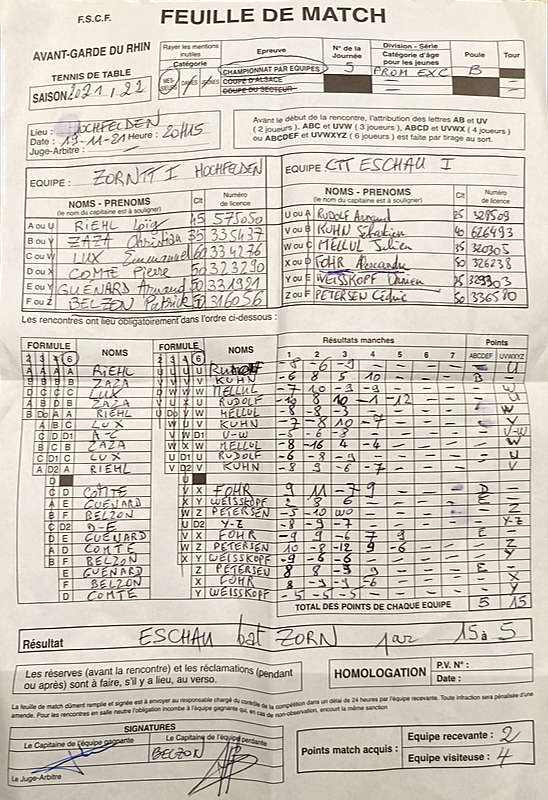 F.S.C.F. FEUILLE DE MATCH
AVANT-GARDE DU RHIN
TENNIS DE TABLE
SAISON 2021 / 22
Rayer les mentions inutiles
Catégorie
MESSIEURS DAMES JEUNES
Epreuve
CHAMPIONNAT PAR EQUIPES
COUPE D'ALSACE
COUPE DU SECTEUR
N° de la Journée
5
Division - Série
Catégorie d'âge pour les jeunes
PROM EXC
Poule
B
Tour
Lieu : HOCHFELDEN
Date : 19-11-21 Heure : 20H15
Juge-Arbitre :
Avant le début de la rencontre, l'attribution des lettres AB et UV
(2 joueurs), ABC et UVW (3 joueurs), ABCD et UVWX (4 joueurs)
ou ABCDEF et UVWXYZ (6 joueurs) est faite par tirage au sort.
EQUIPE : ZORN TT I HOCHFELDEN
NOMS - PRENOMS
(le nom du capitaine est à souligner)
Clt
Numéro de licence
A ou U RIEHL Loïg 45 575050
B ou V ZAZA Christian 35 335437
C ou W LUX Emmanuel 60 334276
D ou X COMTE Pierre 50 323290
E ou Y GUENARD Arnaud 50 331921
F ou Z BELZON Patrick 50 316056
EQUIPE CTT ESCHAU I
NOMS - PRENOMS
(le nom du capitaine est à souligner)
Clt
Numéro de licence
U ou A RUDOLF Arnaud 25 328509
V ou B KUHN Sébastien 40 626493
W ou C MELLUL Julien 35 320305
X ou D FOHR Alexandre 50 326238
Y ou E WEISSKOPF Damien
Z ou F PETERSEN Cédric 50 336580
Les rencontres ont lieu obligatoirement dans l'ordre ci-dessous :
FORMULE
2 3 4 6
NOMS
FORMULE
2 3 4 6
NOMS
Résultats manches
1 2 3 4 5 6 7
Points
ABCDEF UVWXYZ
RIEHL RUDOLF -8 -6 -9 U
ZAZA KUHN 6 8 5 10 B
LUX MELLUL -7 10 -9 -9 W
ZAZA RUDOLF -10 8 10 -1 -12 U
RIEHL MELLUL -8 -8 -3 W
LUX KUHN -7 -8 10 -7 V
A-C U-W -5 -6 -8 U-W
ZAZA MELLUL -8 -16 4 -4 W
LUX RUDOLF -6 -8 -9 U
RIEHL KUHN -8 9 -6 -7 V
COMTE FOHR 9 11 -7 9 D
GUENARD WEISSKOPF 2 8 6 E
BELZON PETERSEN -5 -10 WO Z
D-E Y-Z -8 -9 -7 Y-Z
GUENARD FOHR 9 9 -6 7 9 E
COMTE PETERSEN 10 -8 -12 9 -6 Z
BELZON WEISSKOPF -9 -6 -6 Y
GUENARD PETERSEN 8 8 -9 3 E
BELZON FOHR 8 -9 -9 -6 X
COMTE WEISSKOPF -5 -5 -5 Y
TOTAL DES POINTS DE CHAQUE EQUIPE 5 15
Résultat ESCHAU bat ZORN par 15 à 5
Les réserves (avant la rencontre) et les réclamations (pendant
ou après) sont à faire, s'il y a lieu, au verso.
HOMOLOGATION
P.V. N° :
Date :
La feuille de match dûment remplie et signée est à envoyer au responsable chargé du contrôle de la compétition dans un délai de 24 heures par l'équipe recevante. Toute infraction sera pénalisée d'une
amende. Pour les rencontres en salle neutre l'obligation incombe à l'équipe gagnante qui, en cas de non-observation, encourt la même sanction
SIGNATURES
Le Capitaine de l'équipe gagnante
Le Capitaine de l'équipe perdante
BELZON
Le Juge-Arbitre
Points match acquis :
Equipe recevante : 2
Equipe visiteuse : 4